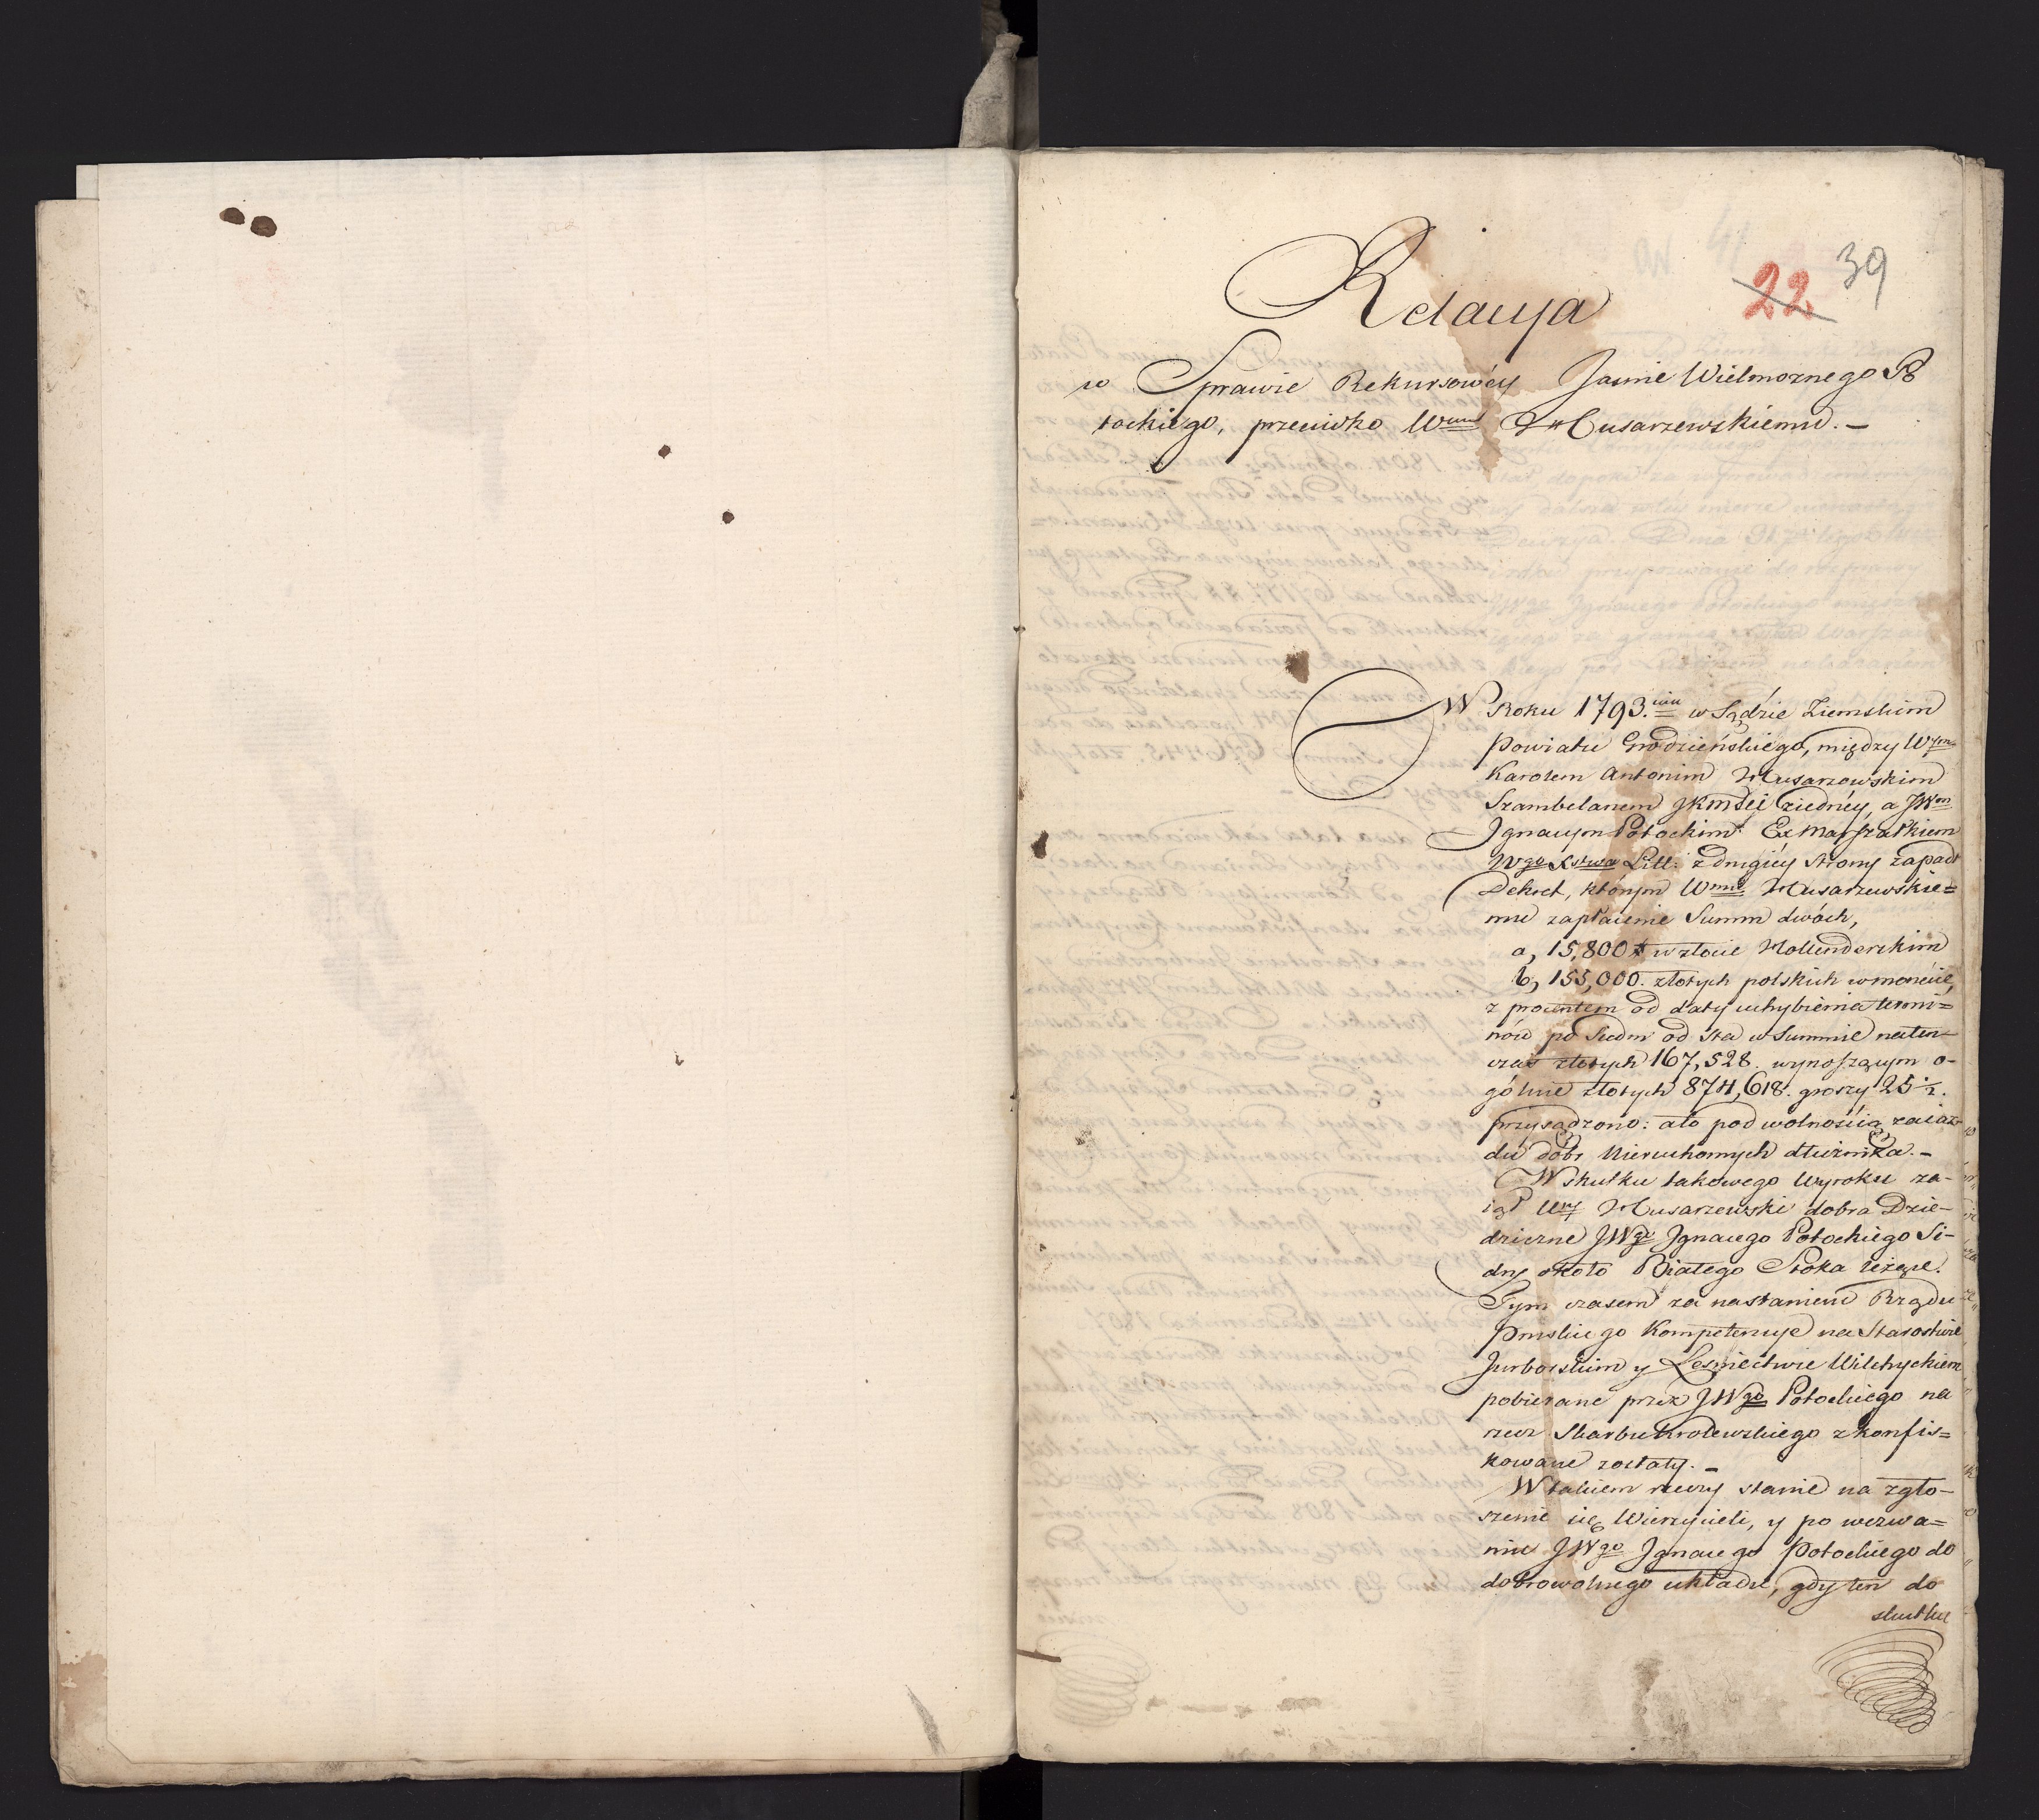 39
22
Relacya
w Sprawie Rekursowéy Jaśnie Wielmożnego Po
tockiego, przeciwko Wmu Husarzewskiemu. —
W Roku 1793.cim w Sądzie Ziemskim
Powiatu Grodzieńskiego, między Wym
Karolem Antonim Husarzowskim
Szambelanem JKMSci ziednéy, a JWm
Ignacym Potockim Ex Marszałkiem
Wgo Xstwa Litt: z drugiéy strony zapadł
Dekret, którym Wmu Husarzewskie=
mu zapłacenie Summ dwóch,
a, 15,800 # w złocie Hollenderskim
b, 155,000. złotych polskich w monecie,
z procentem od daty uchybienia termi=
nów po siedm od sta w Summie naten-
czas złotych 167,528 wynoszącym o-
gólnie złotych 874,618. groszy 25 ½.
przysądzono: a to pod wolnością zaiaz-
du dóbr Nieruchomych dłużnika. –
W skutku takowego Wyroku za-
iął Wny Husarzewski dobra Dzie-
dziczne JWgo Ignacego Potockiego Si-
dry około Białego Stoka leżące.
Tym czasem za nastaniem Rządu
Pruskiego Kompetencye na Starostwie
Jurborskim y Leśnictwie Wilchyckiem
pobierane przez JWgo Potockiego na
rzecz Skarbu Krolewskiego zkonfis=
kowane zostały. –
W takiem rzeczy stanie na zgło-
szenie się Wierzycieli, y po wezwa=
niu JWgo Ignacego Potockiego do
dobrowolnego układu, gdy ten do
skutku